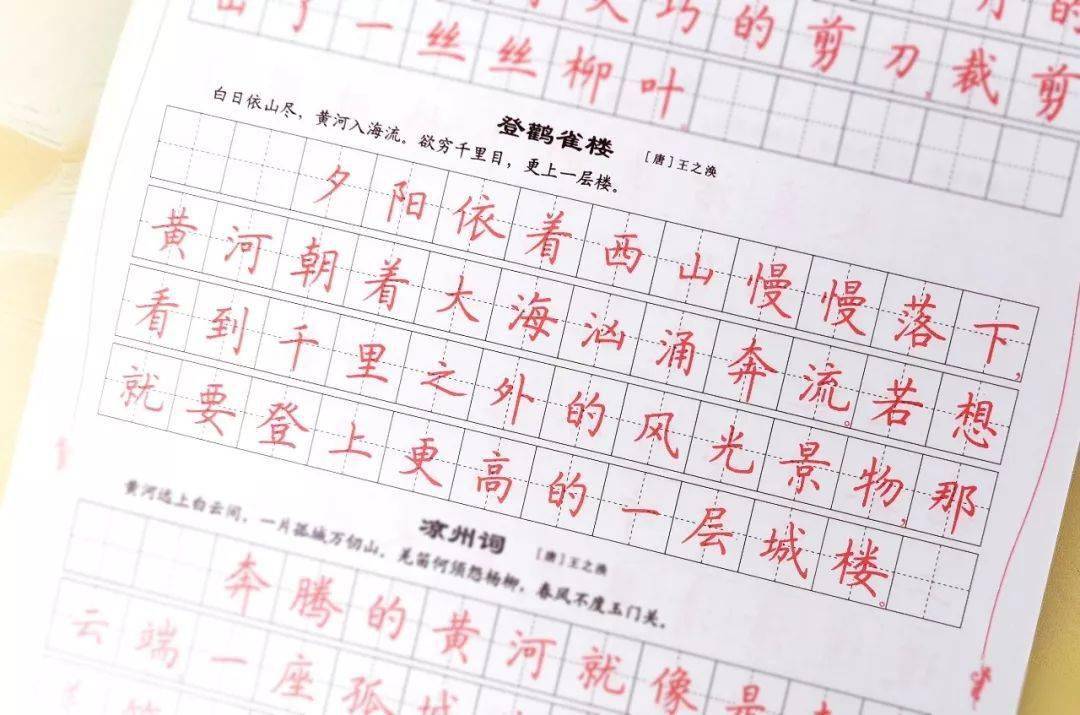 的
巧的剪刀裁剪
出了一丝丝柳叶。
登鹳雀楼 [唐]王之涣
白日依山尽，黄河入海流。欲穷千里目，更上一层楼。
夕阳依着西山慢慢落下，
黄河朝着大海汹涌奔流。若想
看到千里之外的风光景物，那
就要登上更高的一层城楼。
凉州词 [唐]王之涣
黄河远上白云间，一片孤城万仞山。羌笛何须怨杨柳，春风不度玉门关。
奔腾的黄河就像是
云端一座孤城